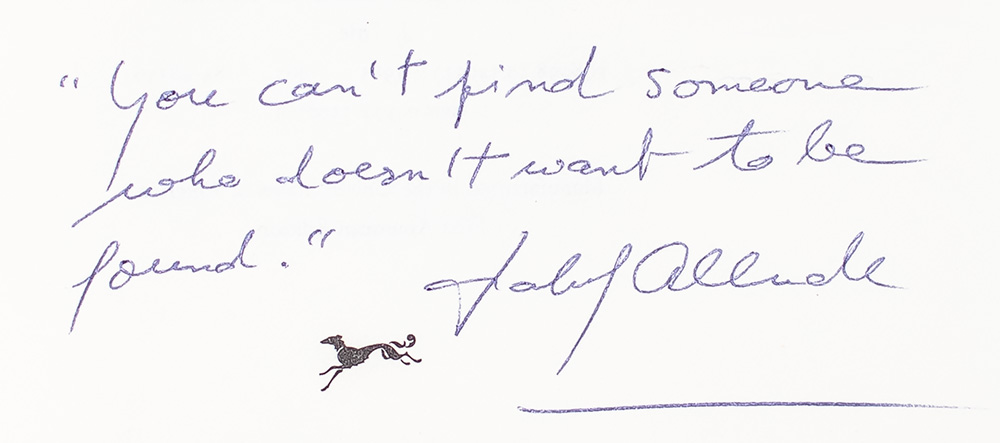 "You can't find someone
who doesn't want to be
found." Isabel Allende